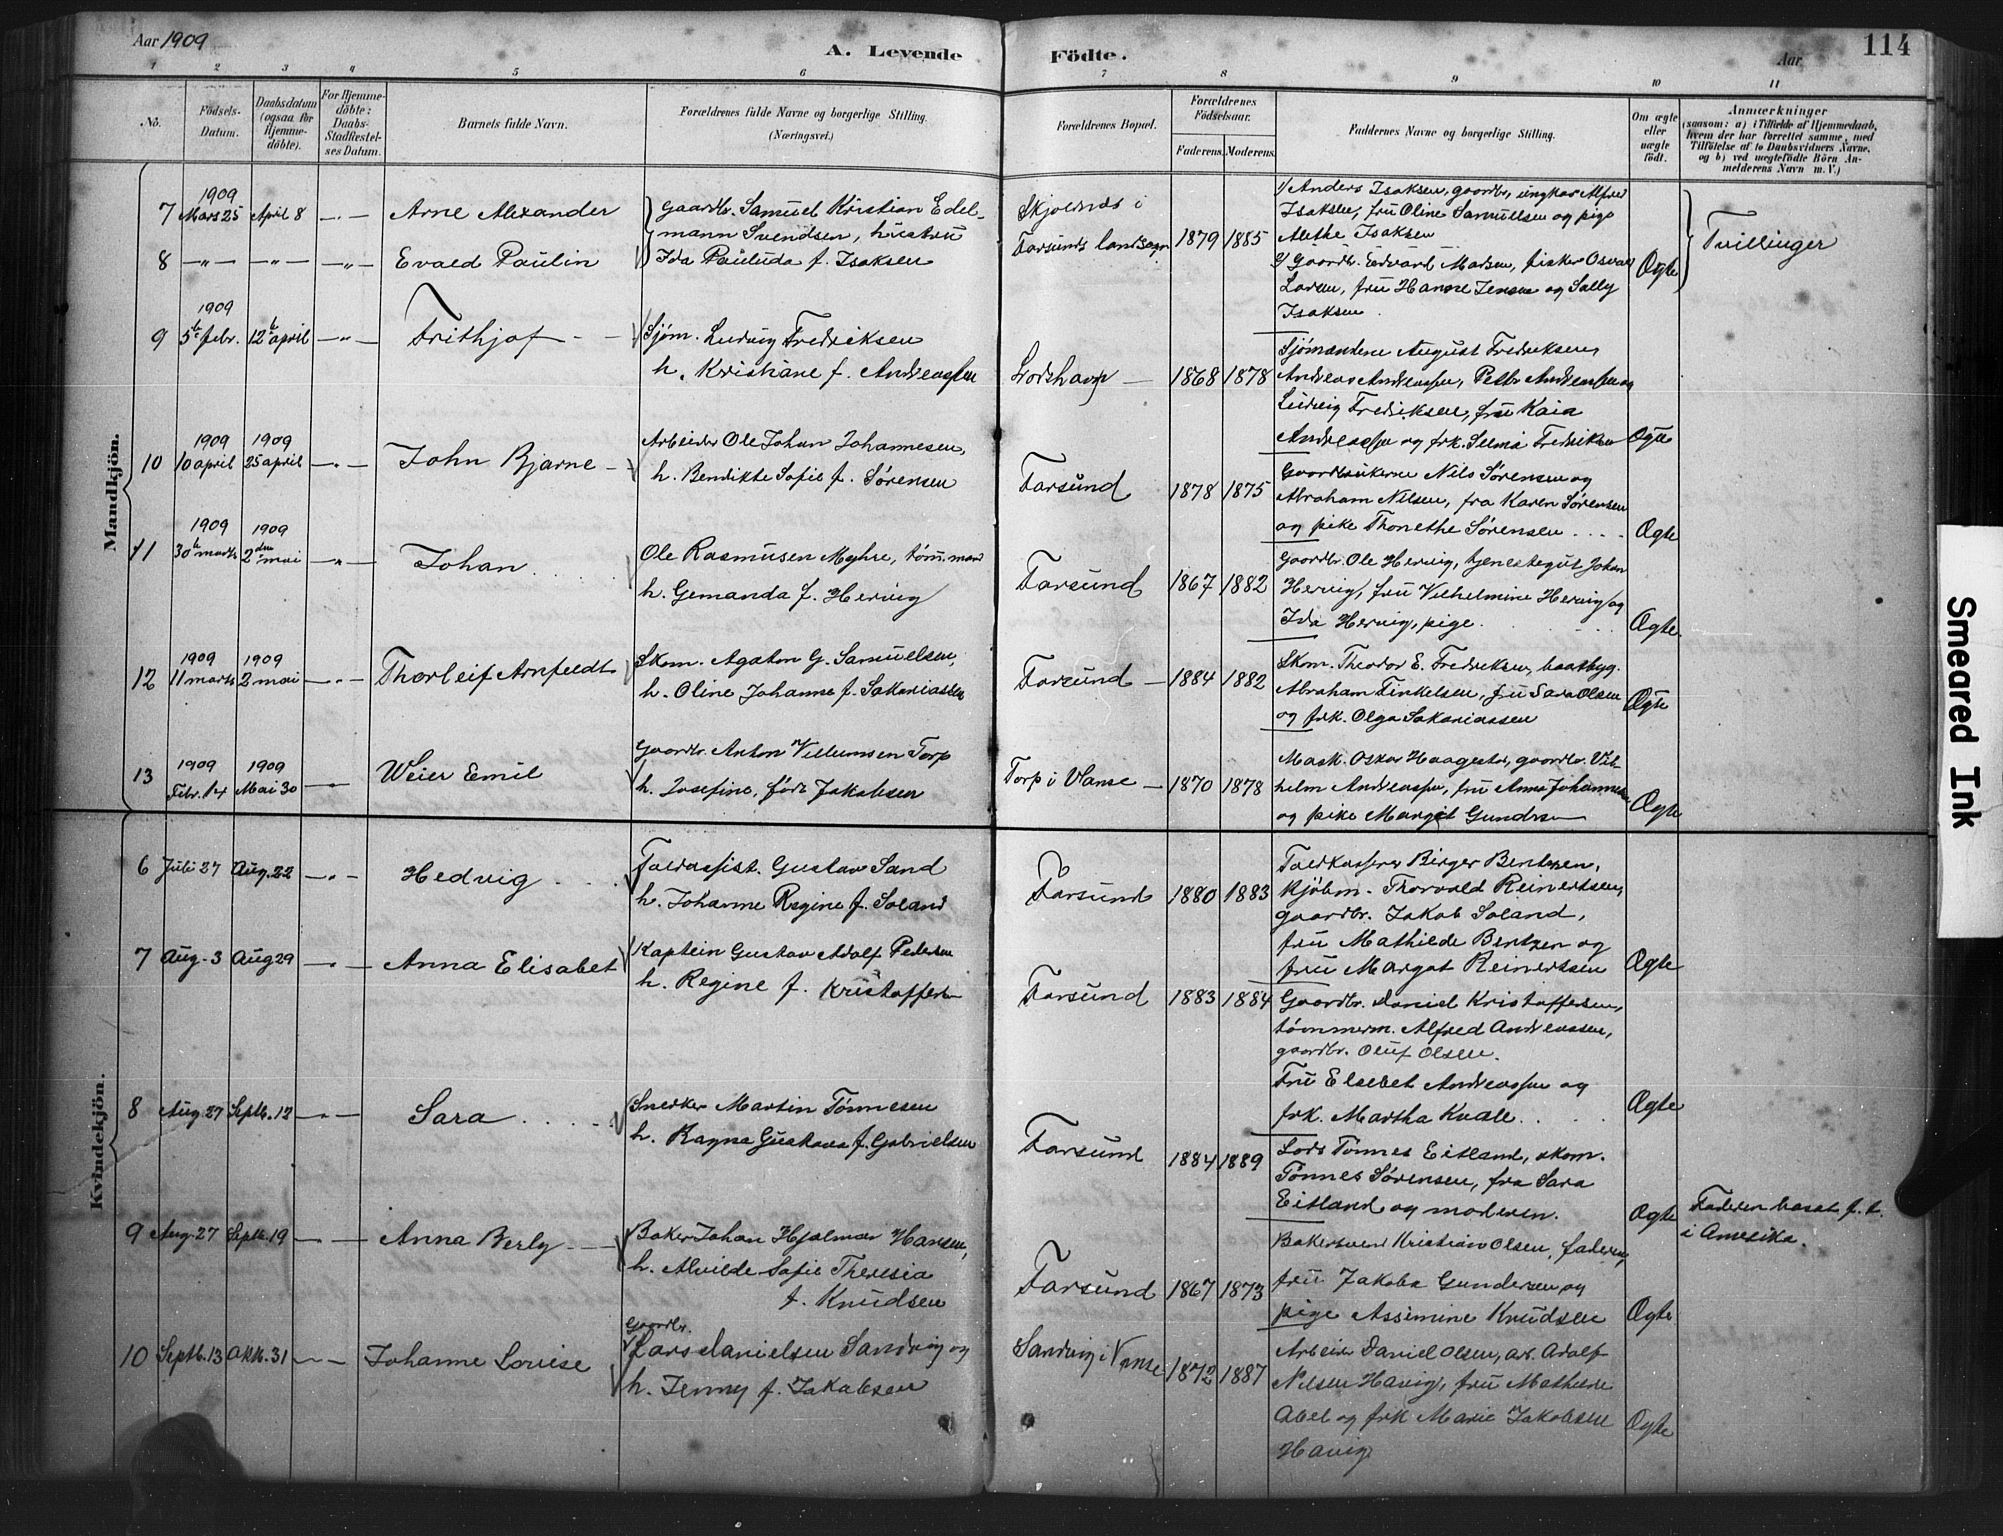 Aar 1909
A. Levende Födte.
Aar
114
1 2 3 4 5 6 7 8 9 10 11
No.
Födsels-Datum.
Daabsdatum (ogsaa for Hjemme-döbte).
For Hjemme-döbte: Daabs-Stadfæstel-ses Datum.
Barnets fulde Navn.
Forældrenes fulde Navne og borgerlige Stilling.
(Næringsvei.)
Forældrenes Bopæl.
Forældrenes Födselsaar.
Faderens. Moderens.
Faddernes Navne og borgerlige Stilling.
Om ægte eller uægte födt.
Anmærkninger
(saasom: a) i Tilfælde af Hjemmedaab,
hvem der har forrettet samme, med
Tilföielse af to Daabsvidners Navne,
og b) ved uægtefödte Börn An-
melderens Navn m. V.)
Mandkjön.
7 1909 Mars 25 April 8 Arne Alexander
Gaardbr. Samuel Kristian Edel-
mann Svendsen, hustru
Ida Pauluda f. Isaksen
Skjolnes i
Farsunds landsogn 1879 1885
1) Anders Isaksen, gaardbr, ungkar Alfred
Isaksen, fru Oline Samuelsen og pige
Alethe Isaksen
Tvillinger
8 -"- -"- -"- Evald Paulin
2) Gaardbr. Edvard Madsen, fisker Osvald
Larsen, fru Hanne Jensen og Sally
Isaksen.
Ægte
9 1909 5te febr. 12te april -"- Frithjof
Sjøm. Ludvig Fredriksen
h. Kristiane f. Andreassen
Lodshavn 1868 1878
Sjømændene August Fredriksen,
Andreas Andreassen, Peder Andreassen og
Ludvig Fredriksen, fru Kaia
Andreassen og frk. Selma Fredriksen Ægte
10 1909 10 april 1909 25 april -"- John Bjarne
Arbeider Ole Johan Johannesen,
h. Bendikte Sofie f. Sørensen
Farsund 1878 1875
Gaardbrukerne Nils Sørensen og
Abraham Nilsen, fru Karen Sørensen
og pike Thonethe Sørensen .... Ægte
11 1909 30te marts 1909 2den mai -"- Johan
Ole Rasmusen Myhre, tøm.mand
h. Gemanda f. Hervig
Farsund 1867 1882
Gaardbr. Ole Hervig, tjenestegut Johan
Hervig, fru Vilhelmine Hervig og
Ida Hervig, pige. Ægte
12 1909 11 marts 1909 2 mai -"- Thorleif Arnfeldt
Skom. Agaton G. Samuelsen,
h. Oline Johanne f. Sakariassen
Farsund 1884 1882
Skom. Theodor E. Fredriksen, baatbyg.
Abraham Finkelsen, fru Sara Olsen
og frk. Olga Sakariassen Ægte
13 1909 Febr. 14 1909 Mai 30 Weier Emil
Gaardbr. Anton Villumsen Torp
h. Josefine, født Jakobsen
Torp i Vanse 1870 1878
Mask. Oskar Haagestad, gaardbr. Vil-
helm Andreassen, fru Anna Johannesen
og pike Margit Gundersen Ægte
Kvindekjön.
6 Juli 27 Aug. 22 -"- Hedvig
Toldassist. Gustav Sand
h. Johanne Regine f. Soland
Farsund 1880 1883
Toldkasserer Birger Bentzen,
kjøbm. Thorvald Reinertsen,
gaardbr. Jakob Soland,
fru Mathilde Bentzen og
fru Margot Reinertsen Ægte
7 Aug. 3 Aug 29 -"- Anna Elisabet
Kaptein Gustav Adolf Pedersen
h. Regine f. Kristoffersen
Farsund 1883 1884
Gaardbr. Daniel Kristoffersen,
tømmerm. Alfred Andreassen,
gaardbr. Oluf Olsen.
Fru Elsebet Andreassen og
frk. Martha Kvale. Ægte
8 Aug. 27 Septb. 12 -"- Sara
Snedker Martin Tønnesen
h. Ragna Gustava f. Gabrielsen
Farsund 1884 1889
Lods Tønnes Eitland, skom.
Tønnes Sørensen, fru Sara
Eitland og moderen. Ægte
Faderen bosat f. t.
i Amerika.
9 Aug. 27 Septb. 19 Anna Berly
Baker Johan Hjalmar Hansen,
h. Alvilde Sofie Theresia
f. Knudsen
Farsund 1867 1873
Bakersvend Kristian Olsen, faderen,
fru Jakoba Gundersen og
pige Assimine Knudsen Ægte
10 Septb. 13 Oktb. 31 Johanne Lovise
Gaardbr.
Lars Danielsen Sandvig og
h. Jenny f. Jakobsen
Sandvig i Vanse 1872 1887
Arbeider Daniel Olsen, arb. Adolf
Nilsen Havig, fru Mathilde
Abel og frk Marie Jakobsen
Havig Ægte
Smeared Ink